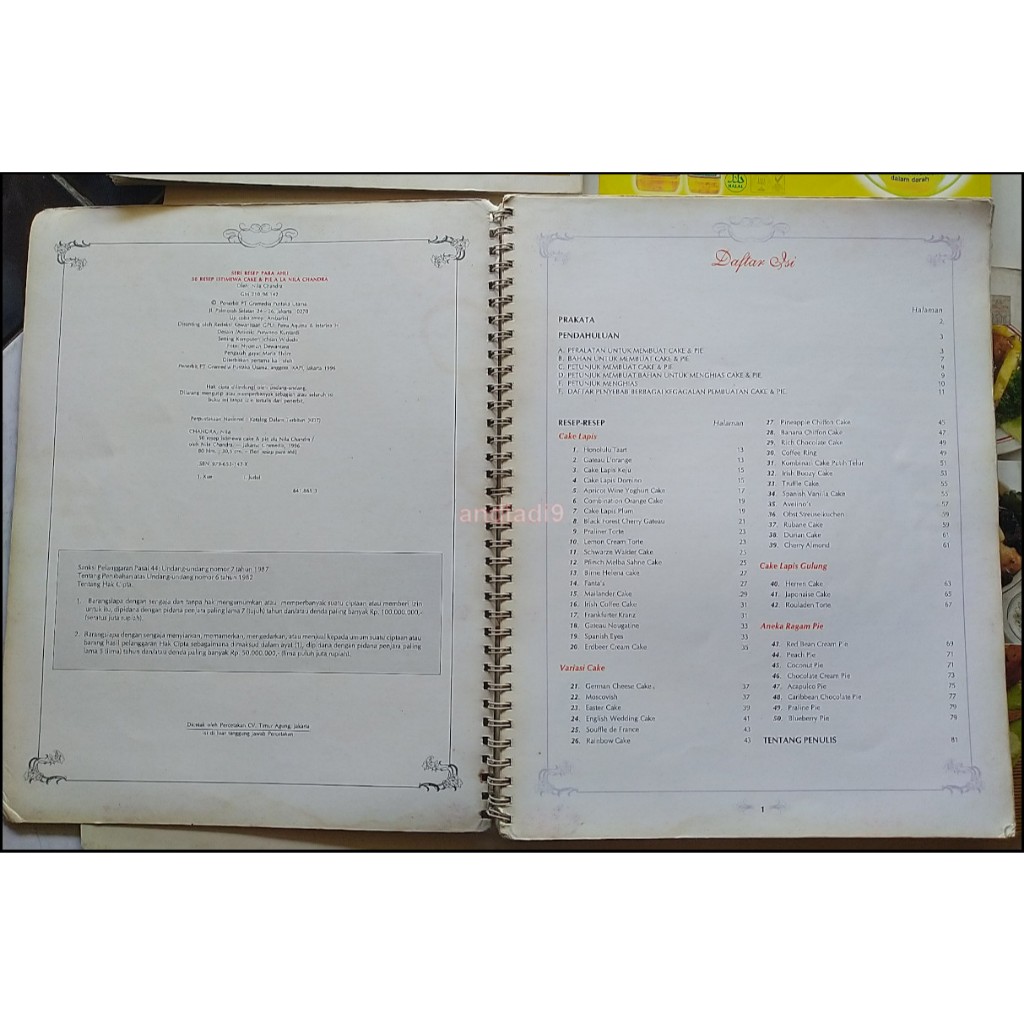 SERI RESEP PARA AHLI
50 RESEP ISTIMEWA CAKE & PIE A LA NILA CHANDRA
Oleh: Nila Chandra
© Penerbit PT Gramedia Pustaka Utama
Jl. Palmerah Selatan 24 - 26, Jakarta 10270
Diterbitkan pertama kali oleh
Penerbit PT Gramedia Pustaka Utama, anggota IKAPI, Jakarta 1996
Hak cipta dilindungi undang-undang.
Dilarang mengutip atau memperbanyak sebagian atau seluruh isi
buku ini tanpa izin tertulis dari penerbit.
Perpustakaan Nasional : Katalog Dalam Terbitan (KDT)
CHANDRA, Nila
50 resep istimewa cake & pie ala Nila Chandra /
I. Kue I. Judul
Sanksi Pelanggaran Pasal 44: Undang-undang nomor 7 tahun 1987
Tentang Perubahan atas Undang-undang nomor 6 tahun 1982
Tentang Hak Cipta.
1. Barangsiapa dengan sengaja dan tanpa hak mengumumkan atau memperbanyak suatu ciptaan atau memberi izin
untuk itu, dipidana dengan pidana penjara paling lama 7 (tujuh) tahun dan/atau denda paling banyak Rp. 100.000.000,-
(seratus juta rupiah).
2. Barangsiapa dengan sengaja menyiarkan, memamerkan, mengedarkan, atau menjual kepada umum suatu ciptaan atau
barang hasil pelanggaran Hak Cipta sebagaimana dimaksud dalam ayat (1), dipidana dengan pidana penjara paling
lama 5 (lima) tahun dan/atau denda paling banyak Rp. 50.000.000,- (lima puluh juta rupiah).
Dicetak oleh Percetakan CV. Timur Agung, Jakarta
Isi di luar tanggung jawab Percetakan
dalam darah
HALAL
Daftar Isi
Halaman
PRAKATA 2
PENDAHULUAN 3
A. PERALATAN UNTUK MEMBUAT CAKE & PIE 3
B. BAHAN UNTUK MEMBUAT CAKE & PIE 7
C. PETUNJUK MEMBUAT CAKE & PIE 9
D. PETUNJUK MEMBUAT BAHAN UNTUK MENGHIAS CAKE & PIE 9
E. PETUNJUK MENGHIAS 10
F. DAFTAR PENYEBAB BERBAGAI KEGAGALAN PEMBUATAN CAKE & PIE 11
RESEP-RESEP Halaman
Cake Lapis
1. Honolulu Taart 13
2. Gateau L'orange 13
3. Cake Lapis Keju 15
4. Cake Lapis Domino 15
5. Apricot Wine Yoghurt Cake 17
6. Combination Orange Cake 19
7. Cake Lapis Plum 19
8. Black Forest Cherry Gateau 21
9. Praliner Torte 21
10. Lemon Cream Torte 23
11. Schwarze Walder Cake 23
12. Pfinch Melba Sahne Cake 25
13. Birne Helena cake 27
14. Fanta's 27
15. Mailander Cake 29
16. Irish Coffee Cake 31
17. Frankfurter Kranz 31
18. Gateau Nougatine 33
19. Spanish Eyes 33
20. Erdbeer Cream Cake 35
Variasi Cake
21. German Cheese Cake 37
22. Moscovish 37
23. Easter Cake 39
24. English Wedding Cake 41
25. Souffle de France 43
26. Rainbow Cake 43
27. Pineapple Chiffon Cake 45
28. Banana Chiffon Cake 47
29. Rich Chocolate Cake 49
30. Coffee Ring 49
31. Kombinasi Cake Putih Telur 51
32. Irish Boozy Cake 53
33. Truffle Cake 53
34. Spanish Vanilla Cake 55
35. Avelino's 57
36. Obst Streuselkuchen 59
37. Rubane Cake 59
38. Durian Cake 61
39. Cherry Almond 61
Cake Lapis Gulung
40. Herren Cake 63
41. Japonaise Cake 65
42. Rouladen Torte 67
Aneka Ragam Pie
43. Red Bean Cream Pie 69
44. Peach Pie 71
45. Coconut Pie 71
46. Chocolate Cream Pie 73
47. Acapulco Pie 75
48. Caribbean Chocolate Pie 77
49. Praline Pie 79
50. Blueberry Pie 79
TENTANG PENULIS 81
1
andiadi9